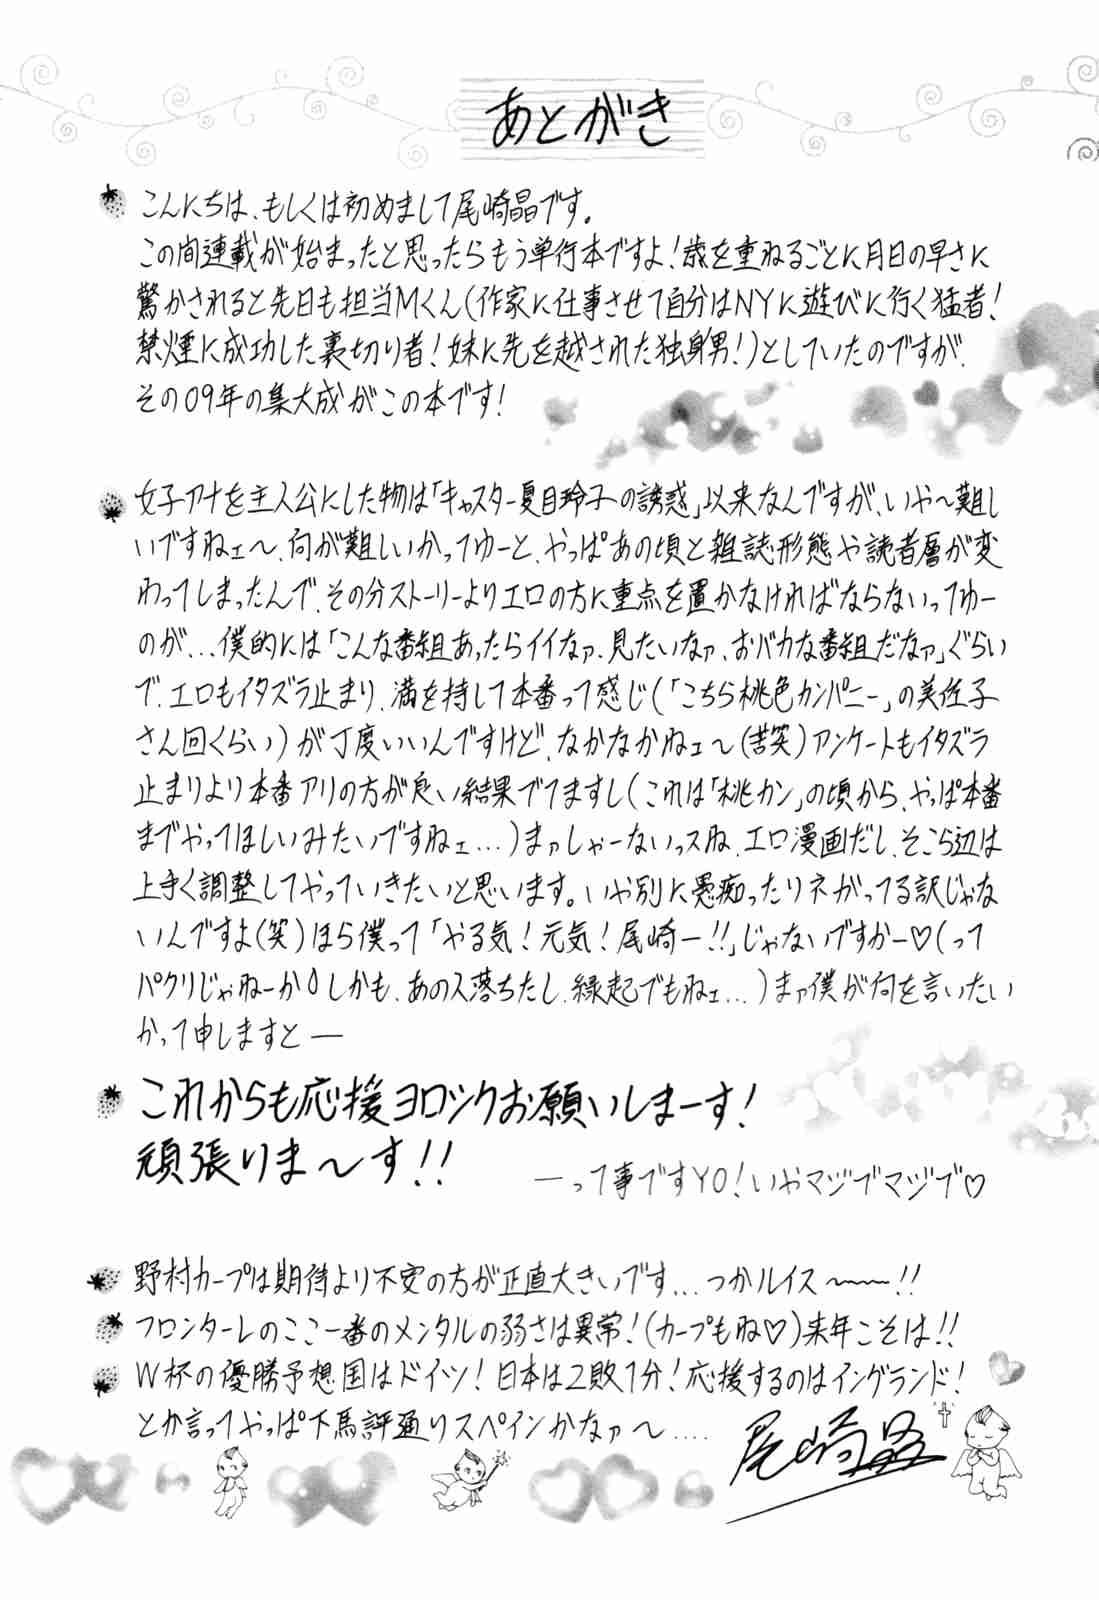 あとがき
こんにちは、もしくは初めまして尾崎晶です。
この間連載が始まったと思ったらもう単行本ですよ!歳を重ねるごとに月日の早さに
驚かされると先日も担当Mくん(作家に仕事させて自分はNYに遊びに行く猛者!
禁煙に成功した裏切り者!妹に先を越された独身男!)としていたのですが、
その09年の集大成がこの本です!
女子アナを主人公にした物は「キャスター夏目玲子の誘惑」以来なんですが、いや〜難し
いですねェ〜、何が難しいかってゆーと、やっぱあの頃と雑誌形態や読者層が変
わってしまったんで、その分ストーリーよりエロの方に重点を置かなければならないってゆー
のが...僕的には「こんな番組あったらイイなァ、見たいなァ、おバカな番組だなァ」ぐらい
で、エロもイタズラ止まり、満を持して本番って感じ(「こちら桃色カンパニー」の美佐子
さん回くらい)が丁度いいんですけど、なかなかねェ〜(苦笑)アンケートもイタズラ
止まりより本番アリの方が良い結果でてますし(これは「桃カン」の頃から、やっぱ本番
までやってほしいみたいですねェ...)まァしゃーないっスね、エロ漫画だし、そこら辺は
上手く調整してやっていきたいと思います。いや別に愚痴ったりネガってる訳じゃな
いんですよ(笑)ほら僕って「やる気!元気!尾崎ー!!」じゃないですかー♡(って
パクリじゃねーか しかも、あの人落ちたし、縁起でもねェ...)まァ僕が何を言いたい
かって申しますと—
これからも応援ヨロシクお願いしまーす!
頑張りま〜す!!
—って事ですYO!いやマジでマジで♡
野村カープは期待より不安の方が正直大きいです...つかルイス〜〜〜!!
フロンターレのここ一番のメンタルの弱さは異常!(カープもね♡)来年こそは!!
W杯の優勝予想国はドイツ!日本は2敗1分!応援するのはイングランド!
とか言ってやっぱ下馬評通りスペインかなァ〜....
尾崎晶